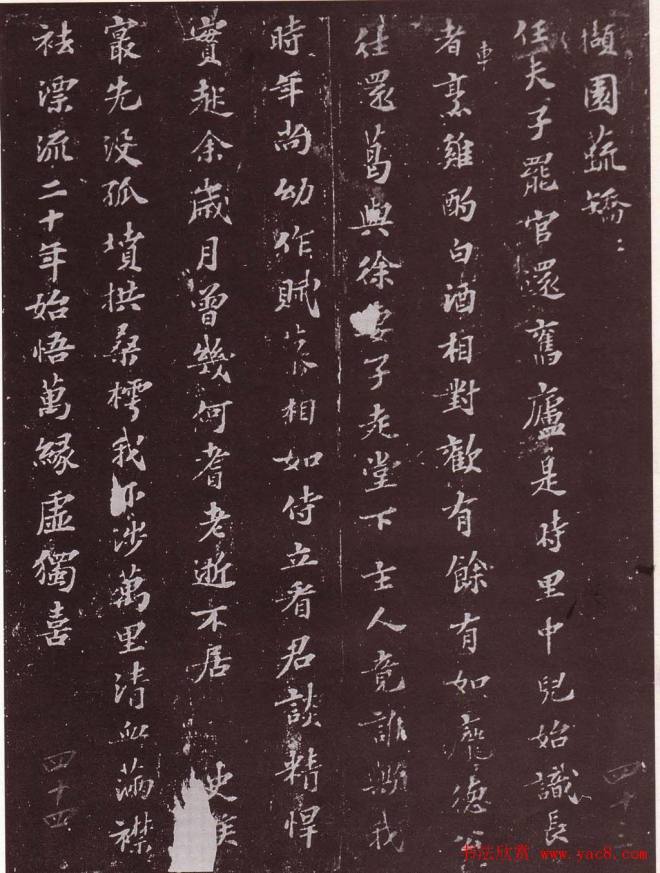 擷園蔬矯〻
任夫子罷官還舊廬是時里中兒始識長
者車烹雞酌白酒相對歡有餘有如龐德公
往還葛與徐妻子走堂下主人竟誰歟我
時年尚幼作賦慕相如侍立看君談精悍
實起余歲月曾幾何耆老逝不居 史侯
最先没孤墳拱桑樗我亦涉萬里清血滿襟
袪漂流二十年始悟萬緣虛獨喜
四十三
四十四
书法欣赏 www.yac8.com